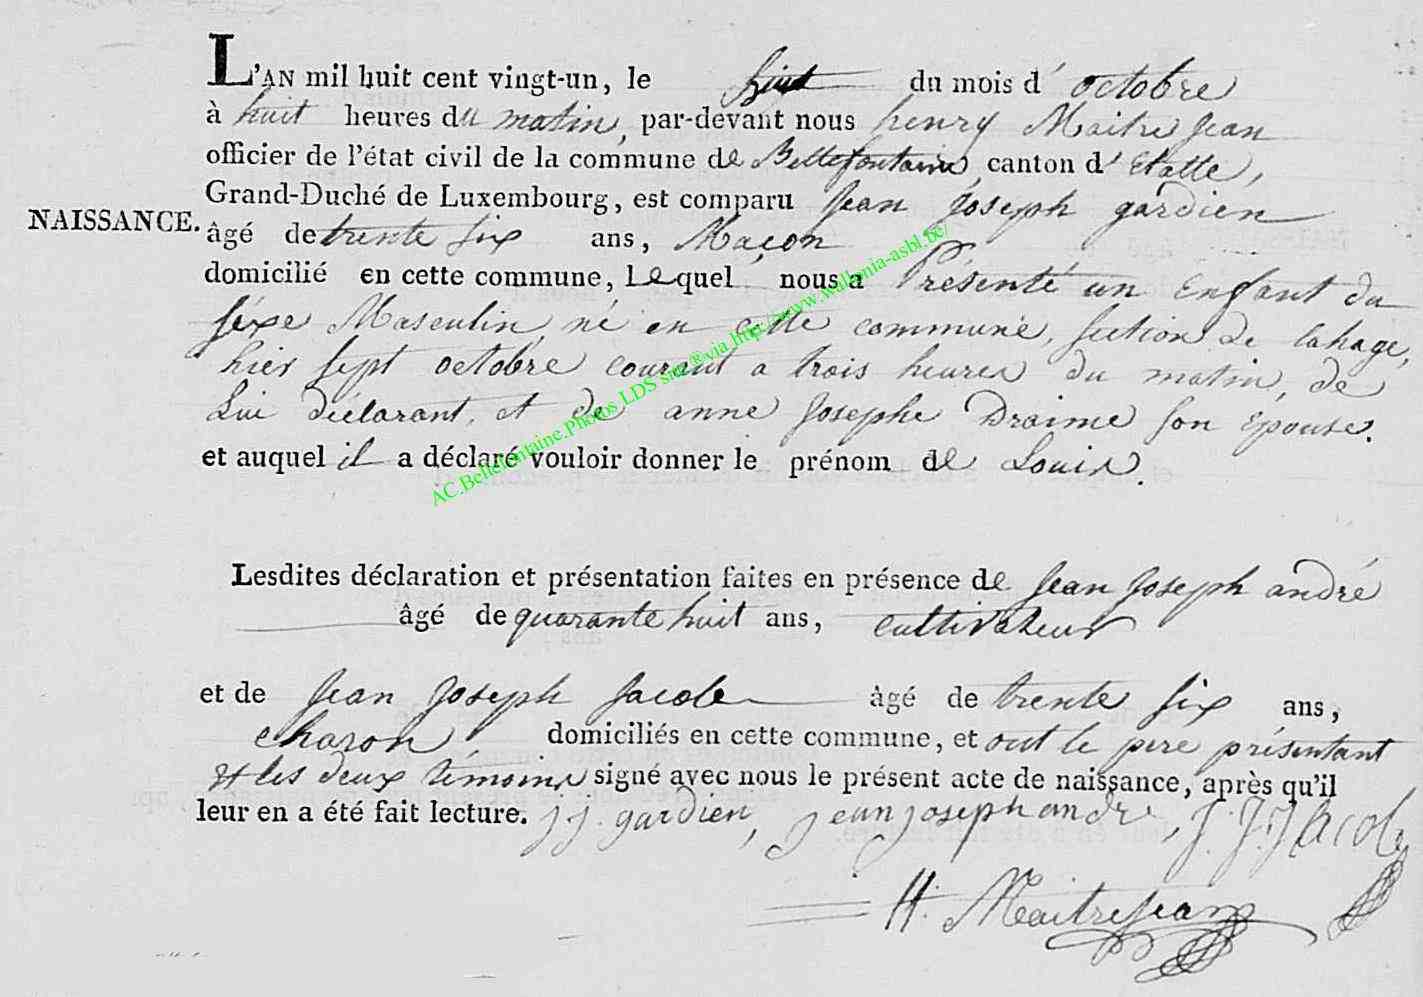 L'AN mil huit cent vingt-un, le huit du mois d'octobre
à huit heures du matin, par-devant nous henry Maitrejean
officier de l'état civil de la commune de Bellefontaine, canton d'Etalle,
Grand-Duché de Luxembourg, est comparu Jean Joseph gardien
NAISSANCE.
âgé de trente six ans, Maçon
domicilié en cette commune, Lequel nous a Présenté un Enfant du
séxe Masculin, né en cette commune, section de lahage,
hier sept octobre courant a trois heures du matin, de
Lui déclarant, et de anne Josephe Draime son Epouse.
et auquel il a déclaré vouloir donner le prénom de Louis.
AC.Bellefontaine.Photos LDS sur®via http://www.wallonia-asbl.be/
Lesdites déclaration et présentation faites en présence de Jean Joseph andré
âgé de quarante huit ans, cultivateur
et de Jean Joseph Jacob âgé de trente six ans,
charon, domiciliés en cette commune, et ont le pere présentant
et les deux témoins signé avec nous le présent acte de naissance, après qu'il
leur en a été fait lecture. j j. gardien, jean joseph andré, J. J. Jacob
H. Maitrejean